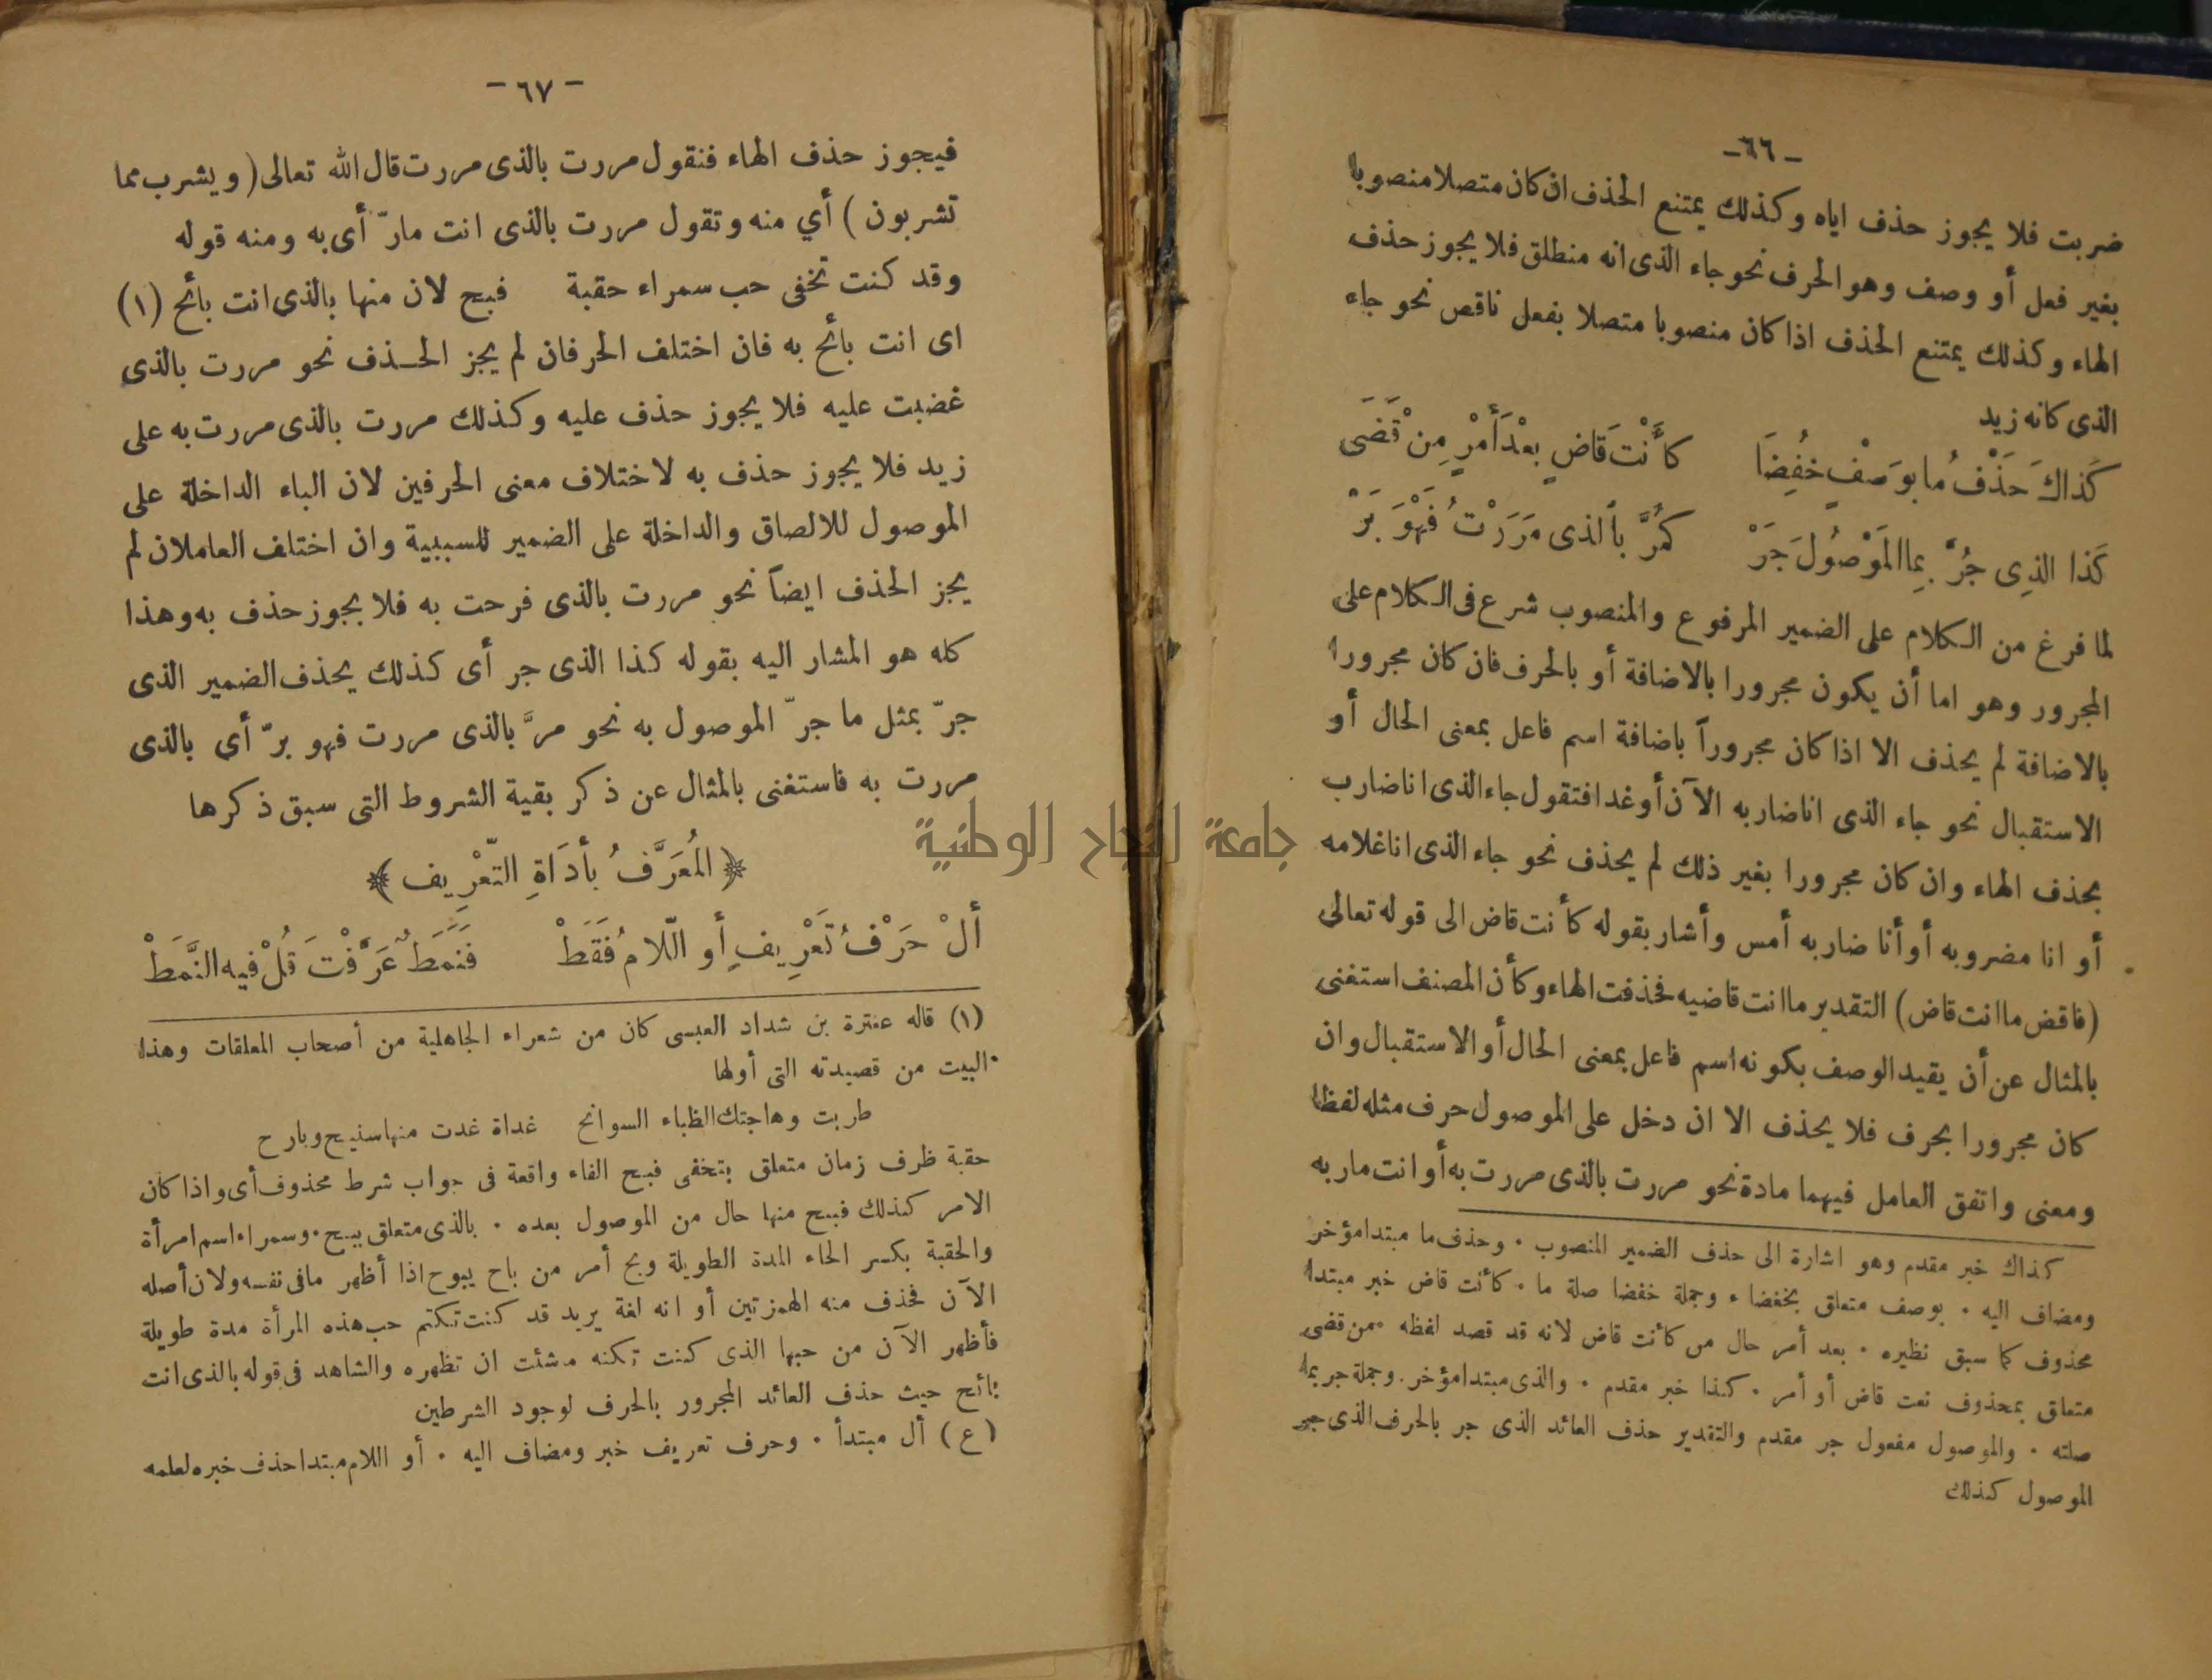 – ٦٦ –
ضربت فلا يجوز حذف اياه وكذلك يمتنع الحذف ان كان متصلا منصوبا
بغير فعل أو وصف وهو الحرف نحو جاء الذى انه منطلق فلا يجوز حذف
الهاء وكذلك يمتنع الحذف اذا كان منصوبا متصلا بفعل ناقص نحو جاء
الذى كانه زيد
كَذاكَ حَذْفُ ما بوَصْفٍ خُفِضَا كأَنْتَ قاضٍ بعْدَ أَمْرٍ مِنْ قَضَى
كَذا الذِى جُرَّ بِما المَوْصُولَ جَرْ كمُرَّ بالذى مَرَرْتُ فَهْوَ بَرْ
لما فرغ من الكلام على الضمير المرفوع والمنصوب شرع فى الكلام على
المجرور وهو اما أن يكون مجرورا بالاضافة أو بالحرف فان كان مجرورا
بالاضافة لم يحذف الا اذا كان مجروراً باضافة اسم فاعل بمعنى الحال أو
الاستقبال نحو جاء الذى انا ضاربه الآن أو غدا فتقول جاء الذى انا ضارب
بحذف الهاء وان كان مجرورا بغير ذلك لم يحذف نحو جاء الذى انا غلامه
أو انا مضروبه أو أنا ضاربه أمس وأشار بقوله كأنت قاض الى قوله تعالى
(فاقض ما انت قاض) التقدير ما انت قاضيه فحذفت الهاء وكأن المصنف استغنى
بالمثال عن أن يقيد الوصف بكونه اسم فاعل بمعنى الحال أو الاستقبال وان
كان مجرورا بحرف فلا يحذف الا ان دخل على الموصول حرف مثله لفظا
ومعنى واتفق العامل فيهما مادة نحو مررت بالذى مررت به أو انت مار به
كذاك خبر مقدم وهو اشارة الى حذف الضمير المنصوب ٠ وحذف ما مبتدا مؤخر
ومضاف اليه ٠ بوصف متعلق بخفضا ٠ وجملة خفضا صلة ما ٠ كأنت قاض خبر مبتدا
محذوف كما سبق نظيره ٠ بعد أمر حال من كأنت قاض لانه قد قصد لفظه ٠ من قضى
متعلق بمحذوف نعت قاض أو أمر ٠ كذا خبر مقدم ٠ والذى مبتدا مؤخر. وجملة جر بما
صلته ٠ والموصول مفعول جر مقدم والتقدير حذف العائد الذى جر بالحرف الذى جر
الموصول كذلك
– ٦٧ –
فيجوز حذف الهاء فنقول مررت بالذى مررت قال الله تعالى (ويشرب مما
تشربون) أي منه وتقول مررت بالذى انت مارّ أى به ومنه قوله
وقد كنت تخفى حب سمراء حقبة فبح لان منها بالذى انت بائح (١)
اى انت بائح به فان اختلف الحرفان لم يجز الحذف نحو مررت بالذى
غضبت عليه فلا يجوز حذف عليه وكذلك مررت بالذى مررت به على
زيد فلا يجوز حذف به لاختلاف معنى الحرفين لان الباء الداخلة على
الموصول للالصاق والداخلة على الضمير للسببية وان اختلف العاملان لم
يجز الحذف ايضاً نحو مررت بالذى فرحت به فلا يجوز حذف به وهذا
كله هو المشار اليه بقوله كذا الذى جر أى كذلك يحذف الضمير الذى
جرّ بمثل ما جرّ الموصول به نحو مرَّ بالذى مررت فهو برّ أى بالذى
مررت به فاستغنى بالمثال عن ذكر بقية الشروط التى سبق ذكرها
﴿المُعَرَّفُ بأدَاةِ التّعْرِيف﴾
ألْ حَرْفُ تَعْرِيفٍ أو اللّامُ فَقَطْ فَنَمَطٌ عَرَّفْتَ قُلْ فيه النَّمَطْ
(١) قاله عنترة بن شداد العبسى كان من شعراء الجاهلية من أصحاب المعلقات وهذا
البيت من قصيدته التى أولها
طربت وهاجتك الظباء السوانح غداة غدت منها سنيح وبارح
حقبة ظرف زمان متعلق بتخفى فبح الفاء واقعة فى جواب شرط محذوف أى واذا كان
الامر كذلك فبح منها حال من الموصول بعده ٠ بالذى متعلق ببح ٠ وسمراء اسم امرأة
والحقبة بكسر الحاء المدة الطويلة وبح أمر من باح يبوح اذا أظهر مافى نفسه ولان أصله
الآن فحذف منه الهمزتين أو انه لغة يريد قد كنت تكتم حب هذه المرأة مدة طويلة
فأظهر الآن من حبها الذى كنت تكنه مشئت ان تظهره والشاهد فى قوله بالذى انت
بائح حيث حذف العائد المجرور بالحرف لوجود الشرطين
(ع) أل مبتدأ ٠ وحرف تعريف خبر ومضاف اليه ٠ أو اللام مبتدا حذف خبره لعلمه
جامعة النجاح الوطنية